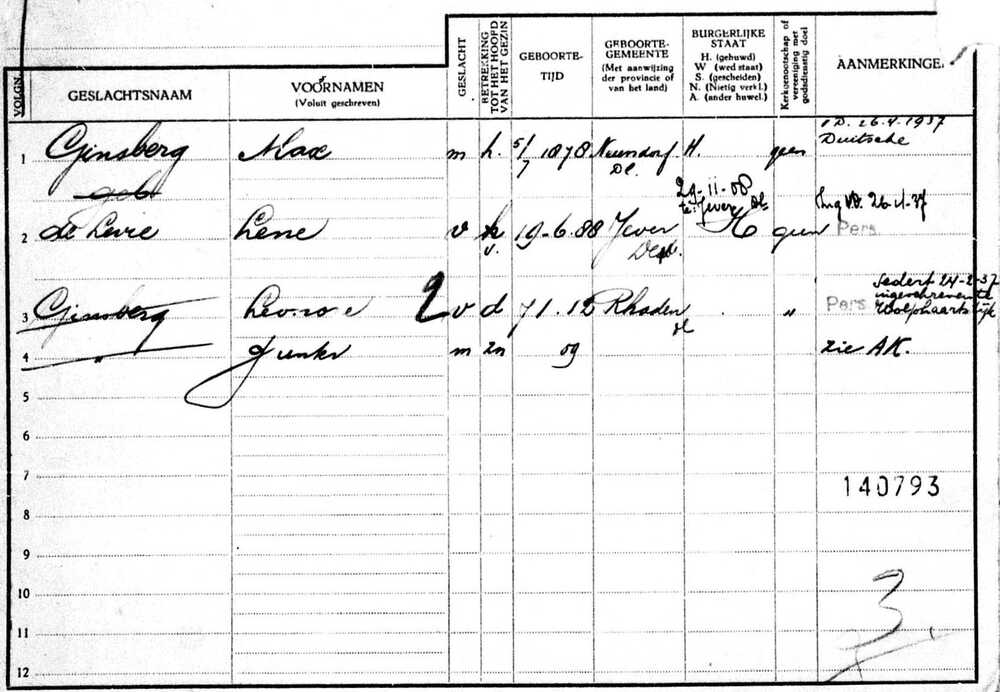 VOLGN. GESLACHTSNAAM VOORNAMEN (Voluit geschreven) GESLACHT BETREKKING TOT HET HOOFD VAN HET GEZIN GEBOORTE- TIJD GEBOORTE- GEMEENTE (Met aanwijzing der provincie of van het land) BURGERLIJKE STAAT H. (gehuwd) W (wed staat) S. (gescheiden) N. (Nietig verkl.) A. (ander huwel.) Kerkgenootschap of vereeniging met godsdienstig doel AANMERKINGE
I D. 26.4.1937
Duitsche
1 Ginsberg Max m h. 5/7 1878 Neundorf Dl. H. geen
geb.
29-11-08
te: Jever Dl.
Ing VB. 26-4-37
2 de Levie Lene v v. 19-6-88 Jever H geen Pers
Sedert 24-2-37
ingeschreven te
Wolphaartsdijk
3 Ginsberg 2 v d 7 1.12 Rhoden Dl . " Pers
4 " m zn 09 zie AK.
5
6
7
140793
8
9
10
3.
11
12